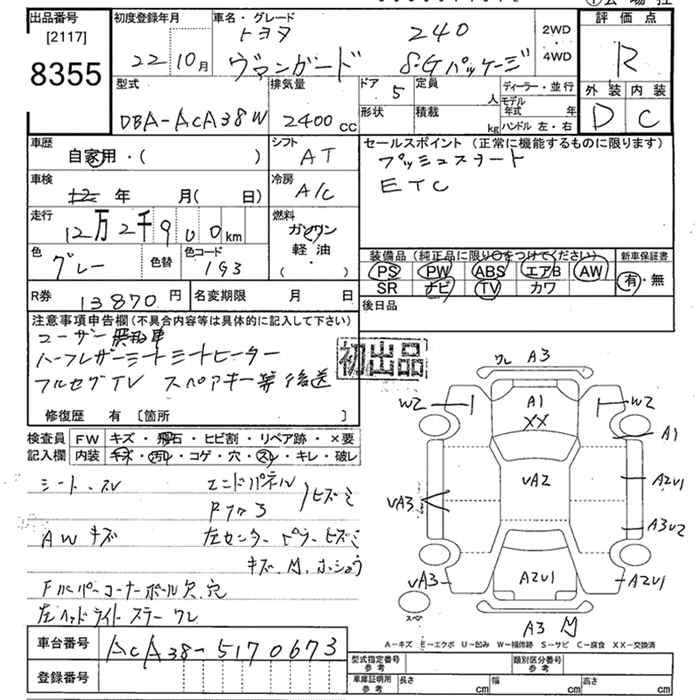 出品番号
[2117]
8355
初度登録年月
22 10月
車名・グレード
トヨタ 240
ヴァンガード S・Gパッケージ
2WD
・
4WD
評価点
R
外装 内装
D C
型式
DBA-ACA38W
排気量
2400 cc
ドア 5
定員 人
形状
積載 kg
ディーラー・並行
モデル年式 年
ハンドル 左・右
車歴
自家用・( )
シフト
AT
セールスポイント (正常に機能するものに限ります)
プッシュスタート
ETC
車検
年 月( 日)
冷房
A/C
走行
12万2千900km
燃料
ガソリン
軽油・
( )
色
グレー
色替
色コード
1G3
装備品 (純正品に限り○をつけてください)
PS PW ABS エアB AW
SR ナビ TV カワ
新車保証書
有・無
R券
13870円
名変期限 月 日
後日品
注意事項申告欄 (不具合内容等は具体的に記入して下さい)
ユーザー
ハーフレザーシート シートヒーター
フルセグTV スペアキー等後送
初出品
修復歴 有 [箇所 ]
検査員
記入欄
FW キズ・飛石・ヒビ割・リペア跡・×要
内装 キズ・汚れ・コゲ・穴・スレ・キレ・破レ
シート スレ エンドパネル
AW キズ 左センターピラー ヒズミ
キズ、M、ホショウ
Fバンパーコーナーポール欠、穴
左ヘッドライトステー ワレ
ワレ A3
W2 A1 W2
XX A1
UA2 A2U1
UA3 A3U2
UA3 A2U1 A2U1
スペア
A3 M
A-キズ E-エクボ U-凹み W-補修跡 S-サビ C-腐食 XX-交換済
車台番号
ACA38-5170673
登録番号
型式指定番号
参考
類別区分番号
参考
車庫証明用
参考
長さ cm
幅 cm
高さ cm